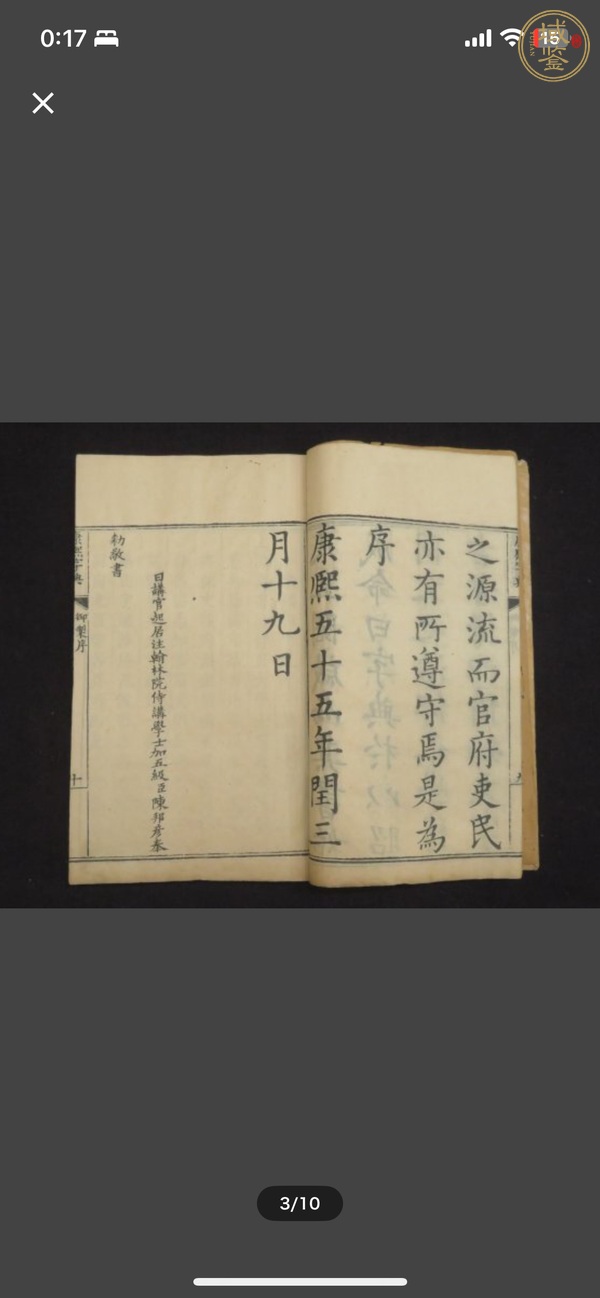 0:17
15
域鉴
之源流而官府吏民
亦有所遵守焉是為
序
康熙五十五年閏三
月十九日
日講官起居注翰林院侍講學士加五級臣陳邦彥奉
勅敬書
康熙字典
御製序
十
3/10